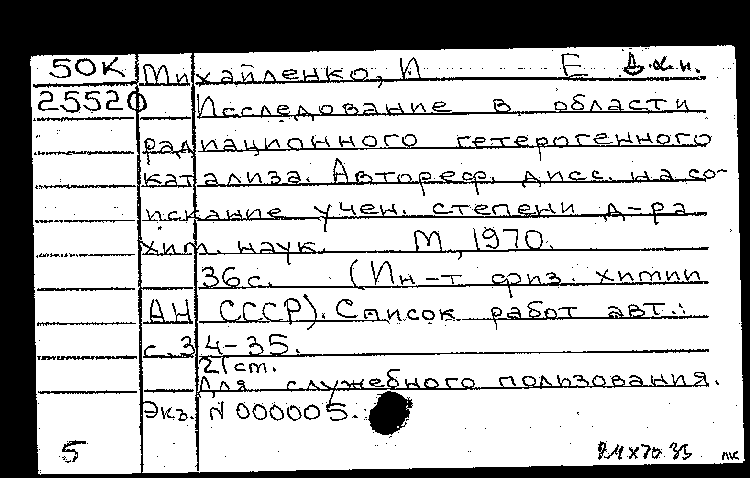 50К Михайленко, И Е Д.х.н.
25520 Исследование в области
радиационного гетерогенного
катализа. Автореф. дисс. на со-
искание учен. степени д-ра
хим. наук. М., 1970.
36 с. (Ин-т физ. химии
АН СССР). Список работ авт.:
с. 34-35.
21 cm.
Для служебного пользования.
Экз. N 000005.
5